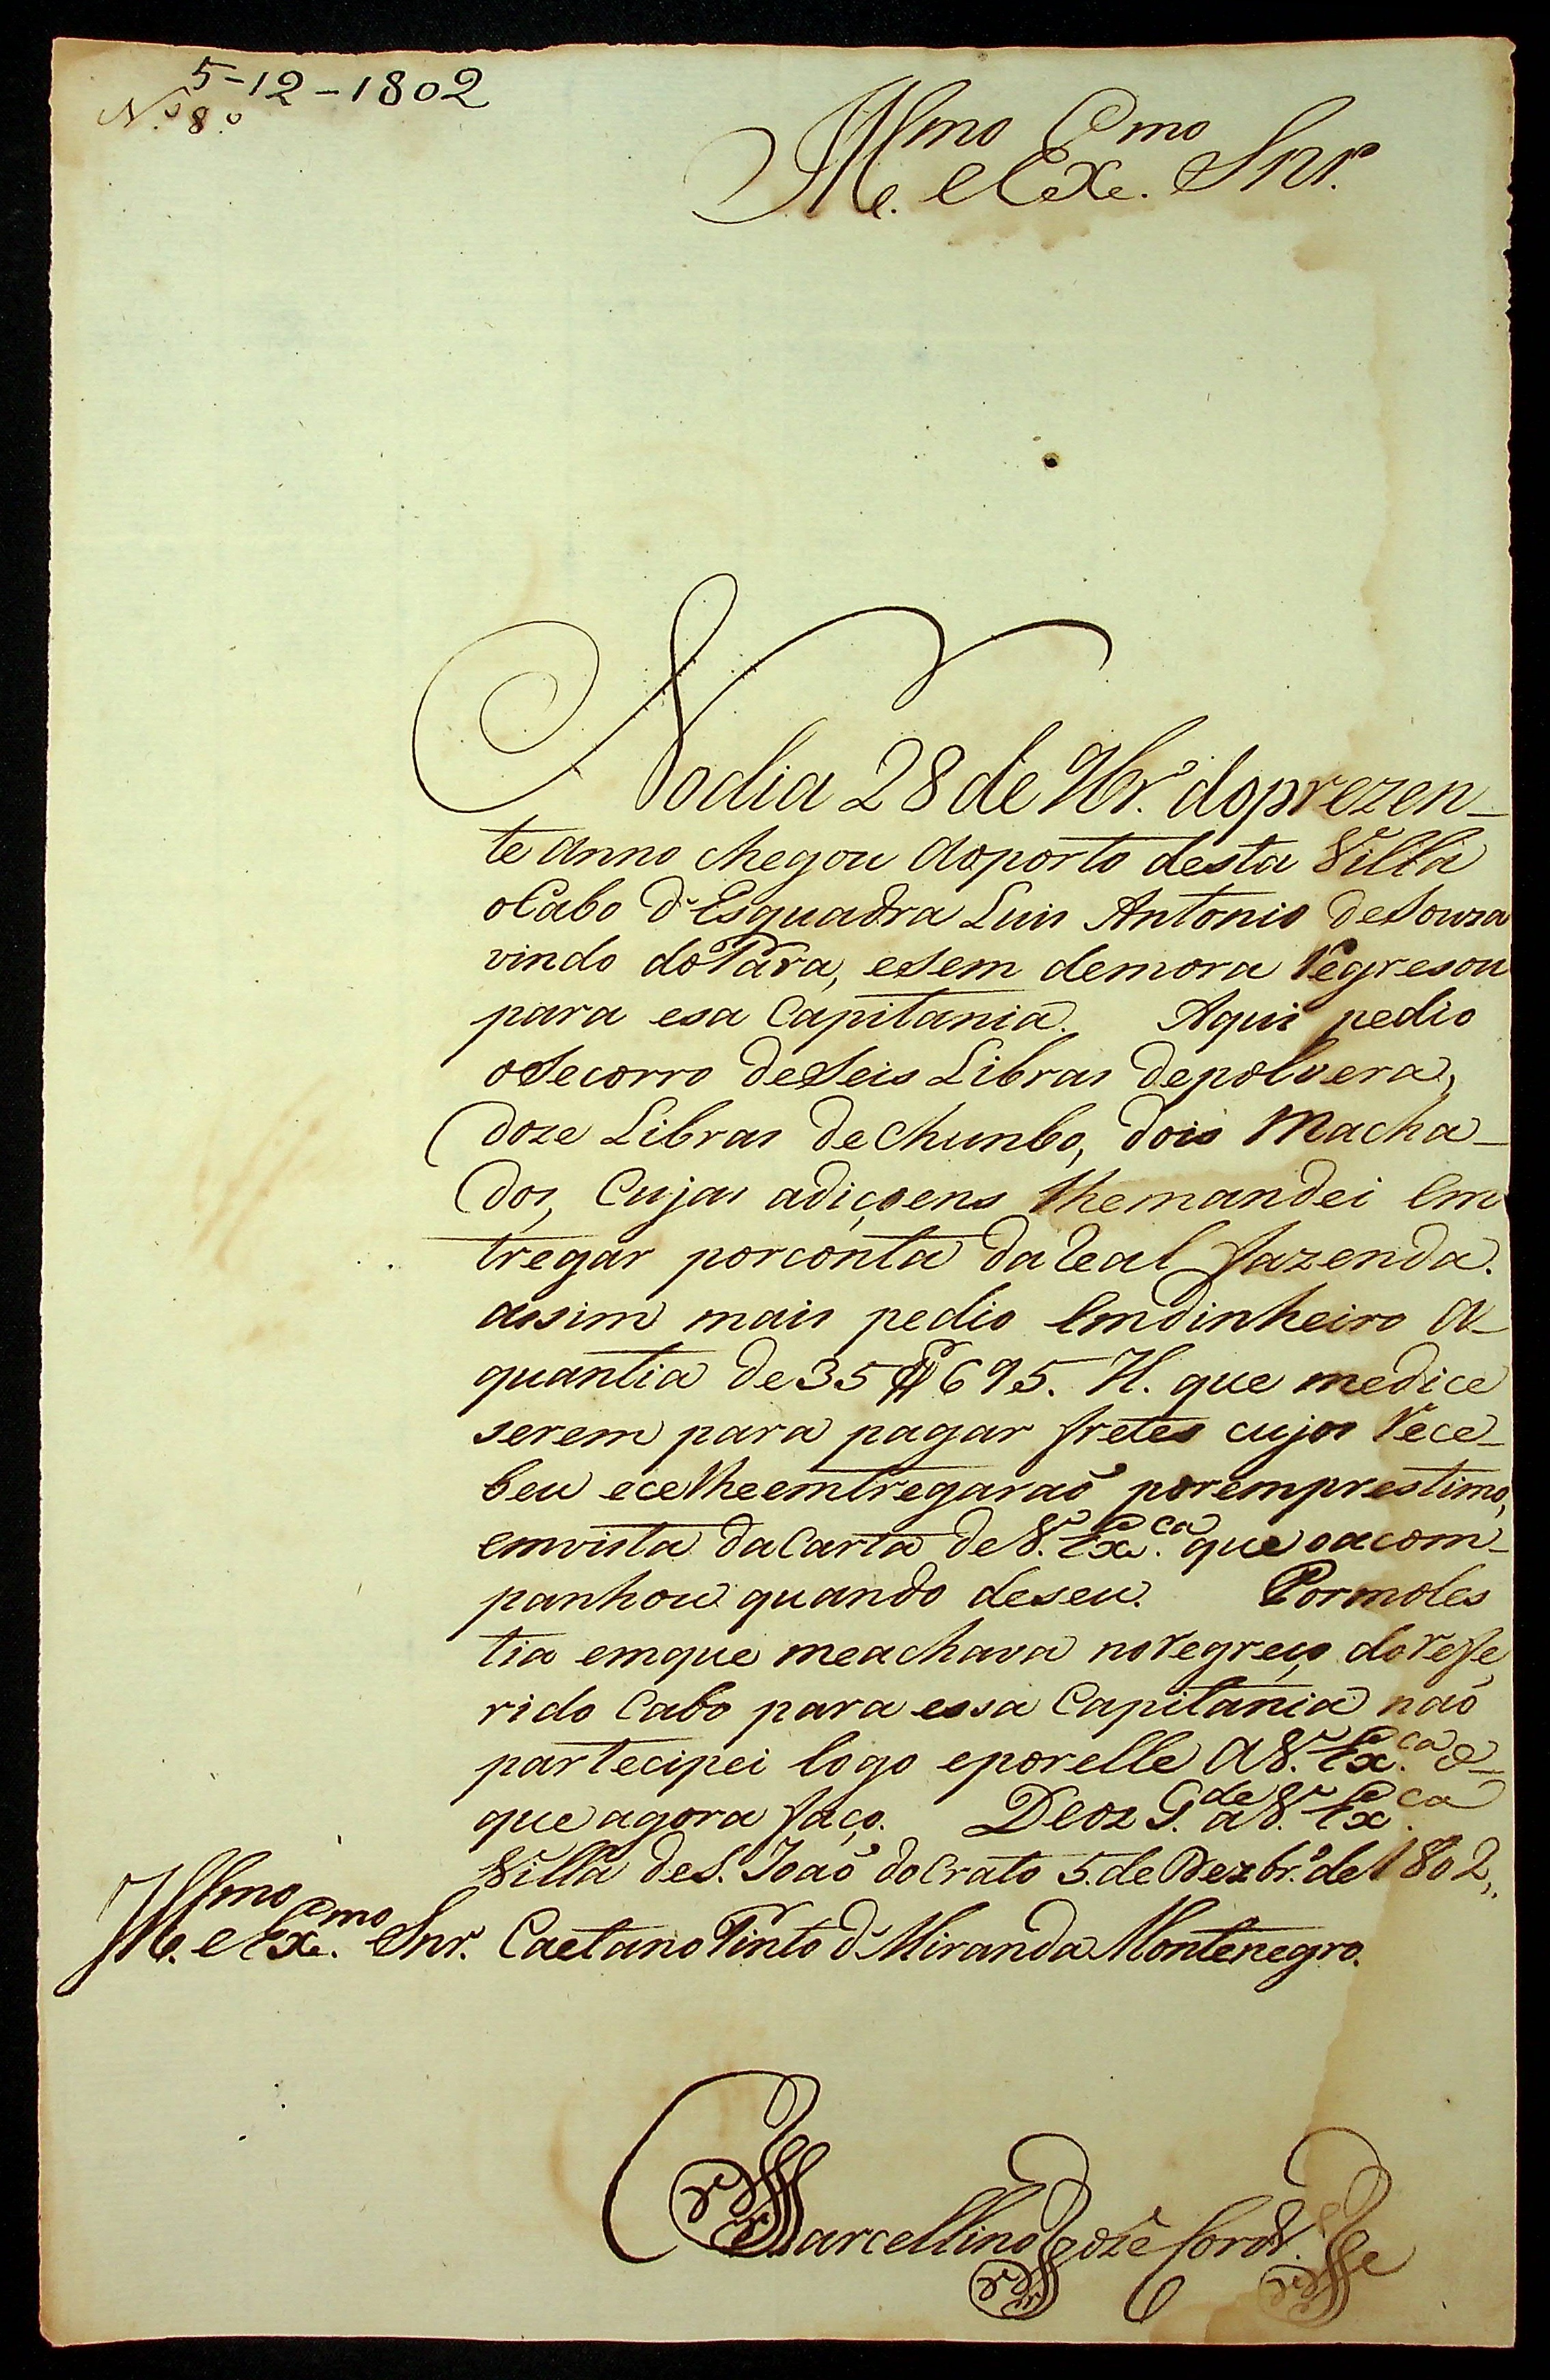 5-12-1802
N.º 8.º
Ill.mo e Ex.mo Snr.
No dia 28 de 9br.º do prezen_
te anno chegou ao porto desta Villa
o Cabo d'Esquadra Luis Antonio de Souza
vindo do Pará, e sem demora regresou
para esa Capitania. Aqui pedio
o Secorro de Seis Libras de polvera,
doze Libras de Chunbo, dois Macha_
dos, Cujas adiçoens lhe mandei em
tregar por conta da Real fazenda.
assim mais pedio em dinheiro a
quantia de 35$695. rs. que me dice
serem para pagar fretes cujos rece_
beu e ce lhe emtregaraõ por emprestimo,
em vista da Carta de V. Ex.ca que o acom_
panhou quando deseu. Por moles
tia em que me achava no regreço do refe
rido Cabo para essa Capitania naõ
partecipei logo e por elle a V. Ex.ca o
que agora faço. Deoz G.de a V. Ex.ca
Villa de S. Joaõ do Crato 5. de Dezbr.º de 1802,,
Ill.mo e Ex.mo Snr. Caetano Pinto d' Miranda Montenegro.
Marcellino Joze Cord.